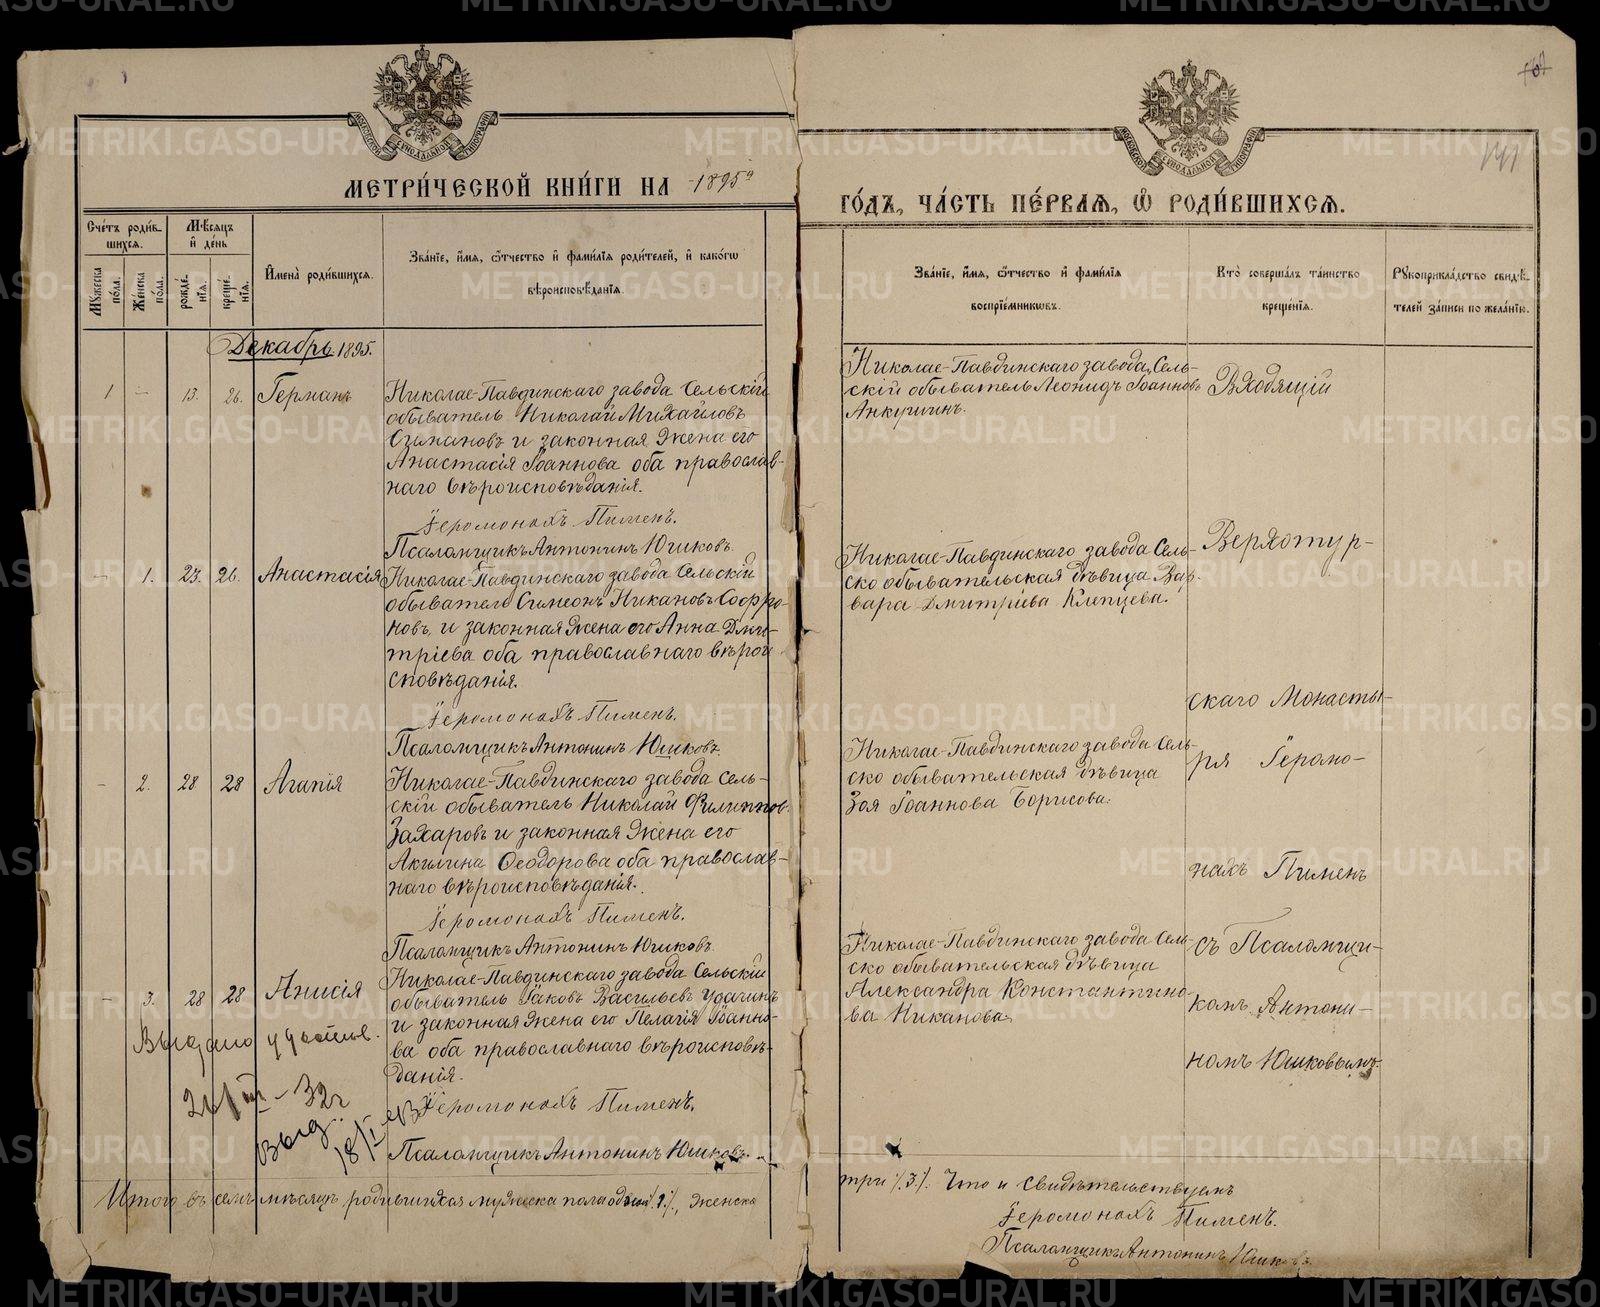 МЕТРИ́ЧЕСКОЙ КНИ́ГИ НА 1895й
ГО́ДЪ, ЧА́СТЬ ПЕ́РВАѦ, Ѽ РОДИ́ВШИХСѦ.
141
Сче́тъ роди́в-
шихся.
Мѣ́сяцъ
и҆ де́нь
И҆мена̀ роди́вшихся.
Зва́нїе, и҆́мя, ѻ҆́тчество и҆ фами́лїя роди́телей, и҆ како́гѡ
вѣроисповѣ́данїя.
Мꙋ́жеска
по́ла.
Же́нска
по́ла.
рожде́-
нїя.
креще́-
нїя.
Зва́нїе, и҆́мя, ѻ҆́тчество и҆ фами́лїя
воспрїе́мникѡвъ.
Кто̀ соверша́лъ та́инство
креще́нїя.
Рꙋкоприкла́дство свидѣ́-
телей за́писи по жела́нїю.
Декабрь 1895.
1 – 13. 26. Германъ
Николае-Павдинскаго завода Сельскій
обыватель Николай Михайловъ
и законная жена его
Анастасія Іоаннова оба православ-
наго вѣроисповѣданія.
Іеромонахъ Пименъ.
Псаломщикъ Антонинъ Юшковъ.
Николае-Павдинскаго завода Сель-
скій обыватель Леонидъ Іоанновъ
Анкушинъ.
– 1. 23. 26. Анастасія
Николае-Павдинскаго завода Сельскій
обыватель Симеонъ Никановъ Софро-
новъ, и законная жена его Анна Дми-
тріева оба православнаго вѣрои-
сповѣданія.
Іеромонахъ Пименъ.
Псаломщикъ Антонинъ Юшковъ.
Николае-Павдинскаго завода Сель-
ско обывательская дѣвица Вар-
вара Дмитріева Клепцева.
– 2. 28 28 Агапія
Николае-Павдинскаго завода Сель-
скій обыватель Николай Филиппов.
Захаровъ и законная жена его
Акилина Ѳеодорова оба православ-
наго вѣроисповѣданія.
Іеромонахъ Пименъ.
Псаломщикъ Антонинъ Юшковъ.
Николае-Павдинскаго завода Сель-
ско обывательская дѣвица
Зоя Іоаннова Борисова.
– 3. 28 28 Анисія
Николае-Павдинскаго завода Сельскій
обыватель Іаковъ Васильевъ Удачинъ
и законная жена его Пелагія Іоанно-
ва оба православнаго вѣроисповѣ-
данія.
Іеромонахъ Пименъ.
Псаломщикъ Антонинъ Юшковъ.
Николае-Павдинскаго завода Сель-
ско обывательская дѣвица
Александра Константино-
ва Никанова.
Входящій
Верхотур-
скаго Монасты-
ря Іеромо-
нахъ Пименъ
съ Псаломщи-
комъ Антони-
номъ Юшковымъ.
Выдано
выд.
Итого въ семъ мѣсяцѣ родившихся мужеска пола одинъ /.1./, женска
три /.3./. Что и свидѣтельствуемъ
Іеромонахъ Пименъ.
Псаломщикъ Антонинъ Юшковъ.
METRIKI.GASO-URAL.RU